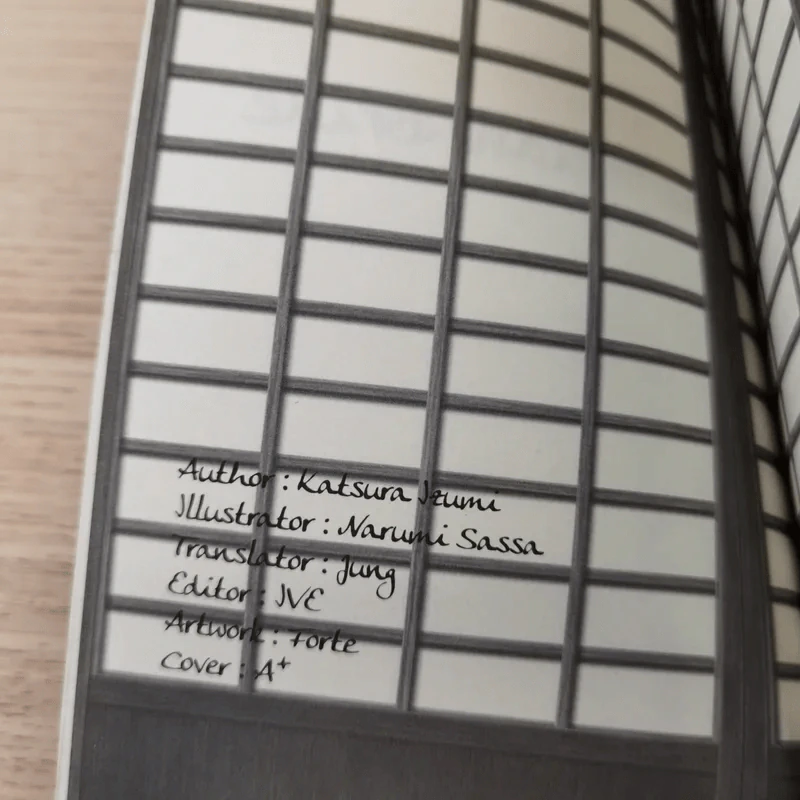 Author : Katsura Izumi
Illustrator : Narumi Sassa
Translator : Jung
Editor : JVE
Artwork : Forte
Cover : A+